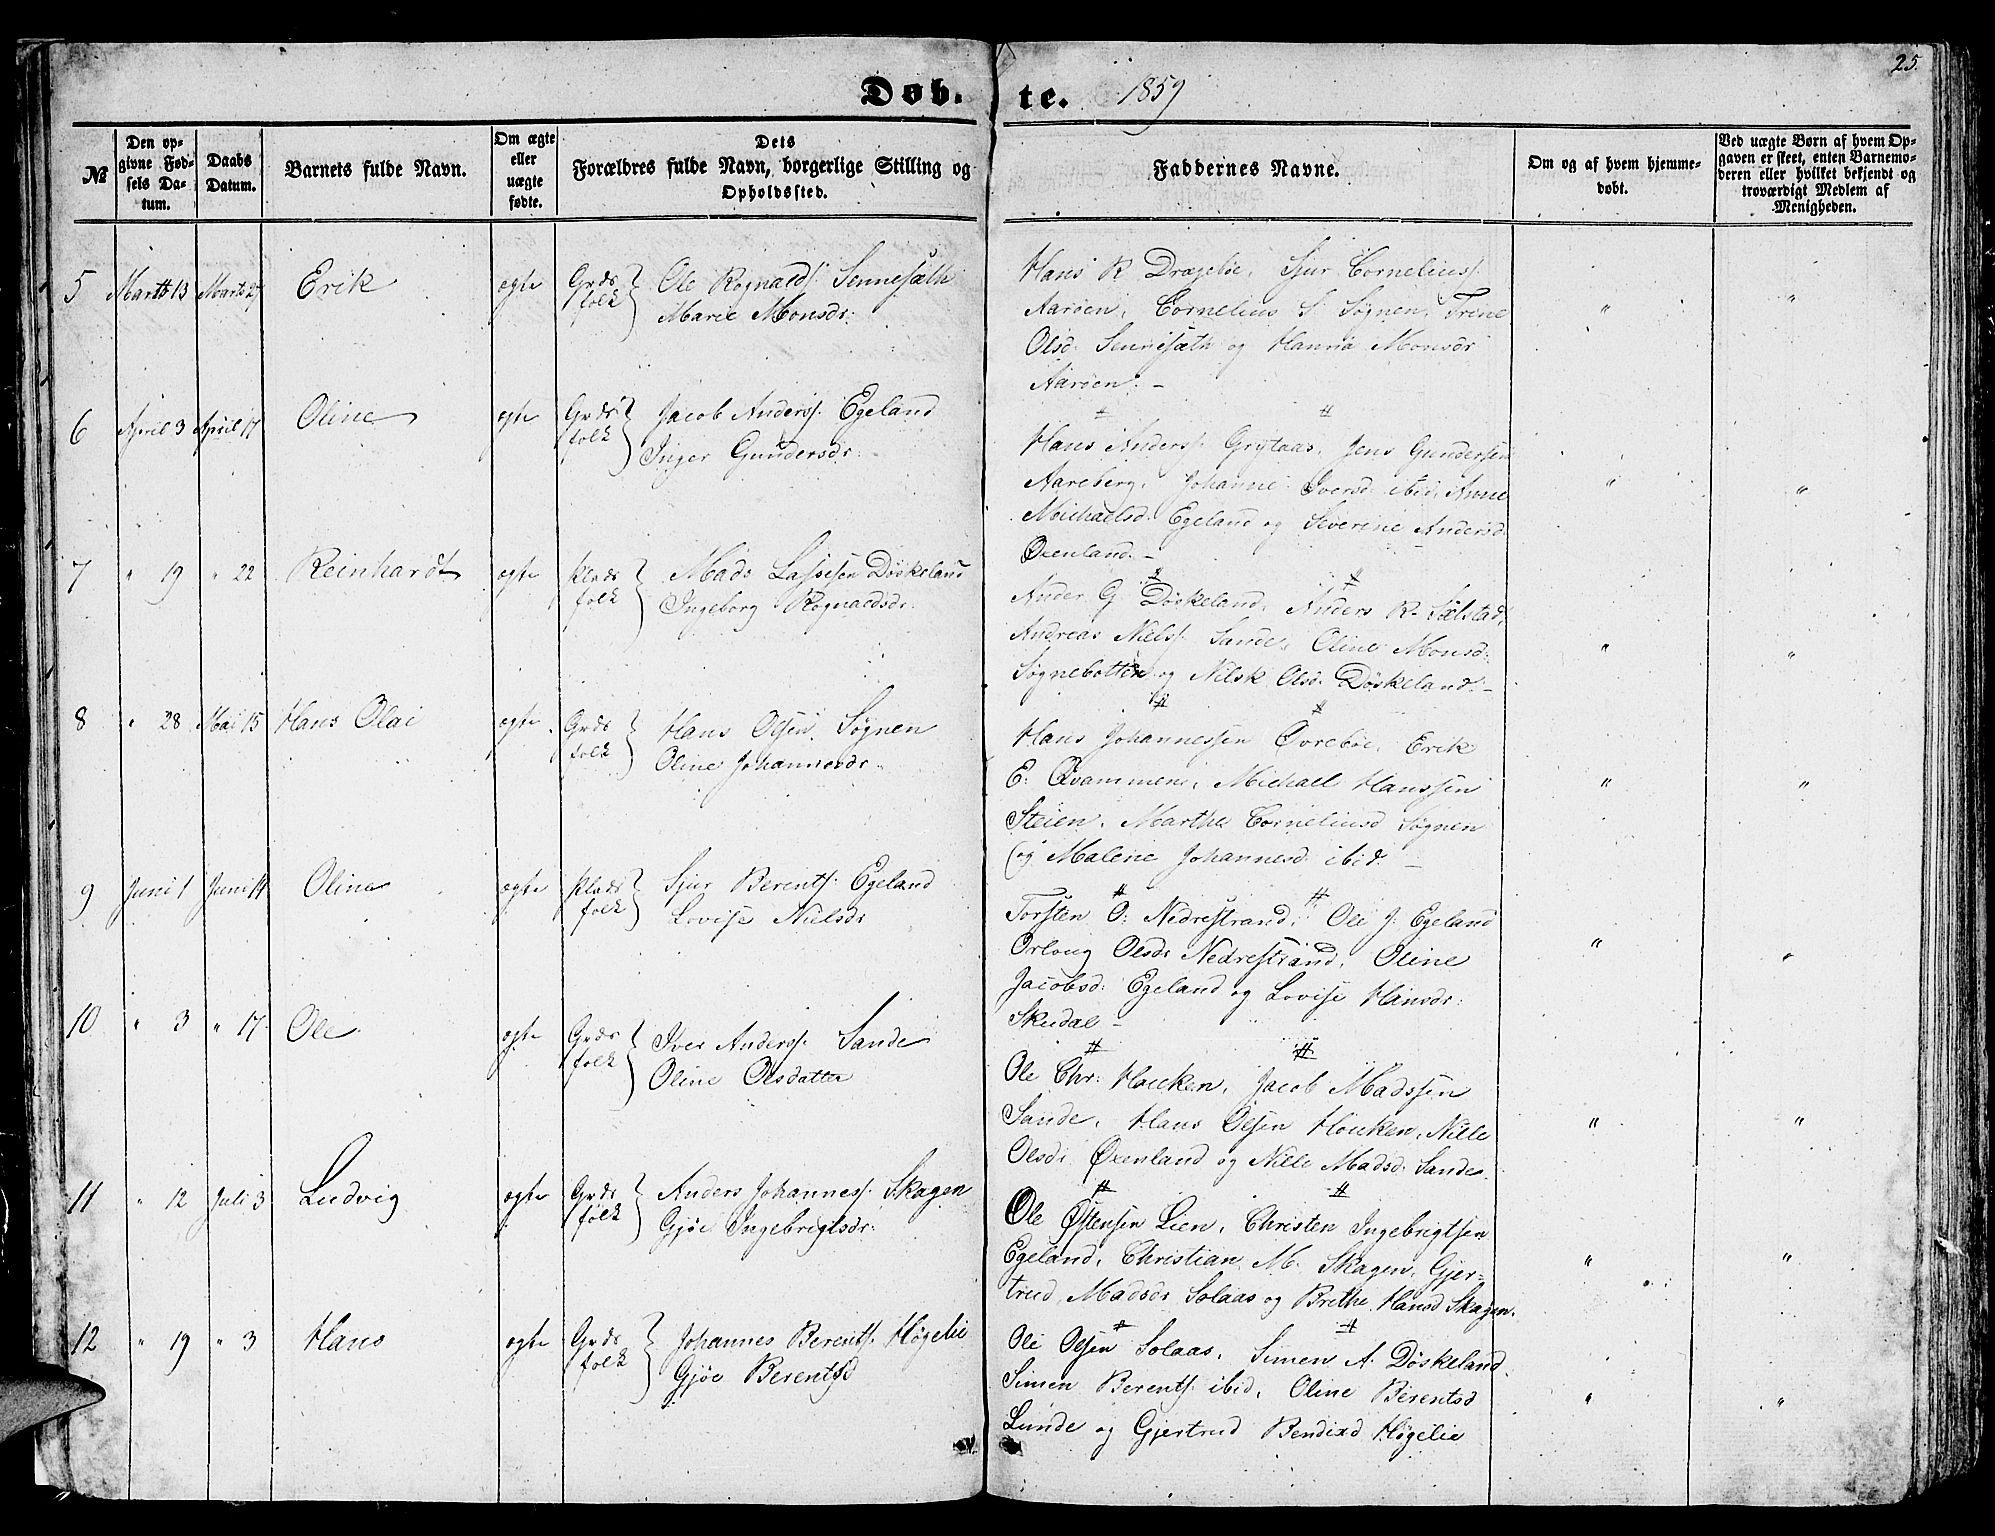 25.
Døb- te. 1859
№
Den op-
givne Fød-
sels Da-
tum.
Daabs
Datum.
Barnets fulde Navn.
Om ægte
eller
uægte
fødte.
Dets
Forældres fulde Navn, borgerlige Stilling og
Opholdssted.
Faddernes Navne.
Om og af hvem hjemme-
døbt.
Ved uægte Børn af hvem Op-
gaven er skeet, enten Barnemo-
deren eller hvilket bekjendt og
troværdigt Medlem af
Menigheden.
5 Marts 13 Marts 27 Erik ægte Grds folk Ole Rognalds. Sennesæth
Marie Monsdr.
Hans R. Dragebøe, Sjur Corneliuss.
Aarøen, Cornelius S. Søgnen, Trine
Olsd. Sennesæth og Hanna Monsdr
Aarøen. - " "
6 April 3 April 17 Oline ægte Grds folk Jacob Anderss. Egeland
Inger Gundersdr.
Hans Anderss. Grytaas, Jens Gundersen
Aareberg, Johanne Iversd. ibid, Anne
Michaelsd. Egeland og Severine Andersd.
Øxenland. - " "
7 " 19 " 22 Reinhardt ægte Plads folk Mads Lassesen Døskeland
Ingeborg Rognaldsdr.
Ander G. Døskeland, Anders R. Sælstad,
Andreas Nielss. Sande, Oline Monsd.
Søgnebotten og Nilsk Olsd. Døskeland. - " "
8 " 28 Mai 15 Hans Olai ægte Grds folk Hans Olsen Søgnen
Oline Johannesdr.
Hans Johannessen Øvrebøe, Erik
E. Qvammene, Michael Hanssen
Steien, Marthe Corneliusd Søgnen
og Malene Johannesd. ibid. - " "
9 Juni 1 Juni 14 Oline ægte Plads folk Sjur Berents. Egeland
Lovise Nielsdr
Torsten O. Nedrestrand, Ole J. Egeland
Olsdr Nedrestrand, Oline
Jacobsd. Egeland og Lovise Hansdr.
Skudal - " "
10 " 3 " 17 Ole ægte Grds folk Iver Anderss. Sande
Oline Olsdatter
Ole Chr. Houken, Jacob Madssen
Sande, Hans Olsen Houken, Nille
Olsdr Øxenland og Nille Madsd. Sande. " "
11 " 12 Juli 3 Ludvig ægte Grds folk Anders Johanness. Skagen
Gjøe Ingebrigtsdr.
Ole Østensen Lien, Christen Ingebrigtsen
Egeland, Christian M. Skagen, Gjer-
trud Madsdr Solaas og Brethe Hansd Skagen. " "
12 " 19 " 3 Hans ægte Grds folk Johannes Berents. Høgelie
Gjøe Berentsd
Ole Olsen Solaas, Simen A. Døskeland
Simen Berents. ibid, Oline Berentsd
Lunde og Gjertrud Bendixd Høgelie " "